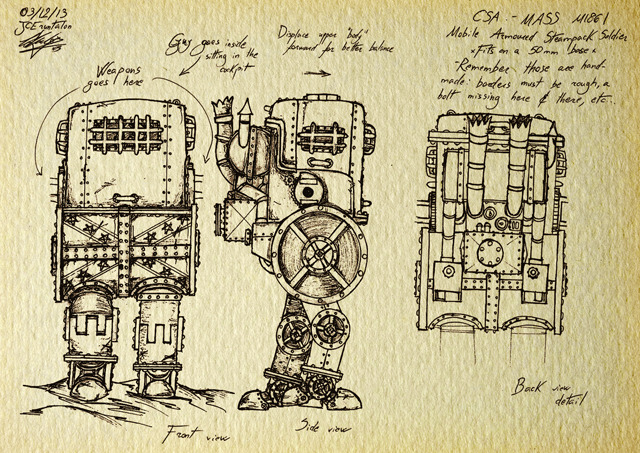 03/12/13
Weapons
goes here
Guy goes inside
sitting in the
cockpit
Displace upper "body"
forward for better balance
CSA - MASS M1861
Mobile Armoured Steampack Soldier
*Fits on a 50mm base*
-Remember those are hand-
made: borders must be rough, a
bolt missing here & there, etc...
Front view
Side view
Back view
detail